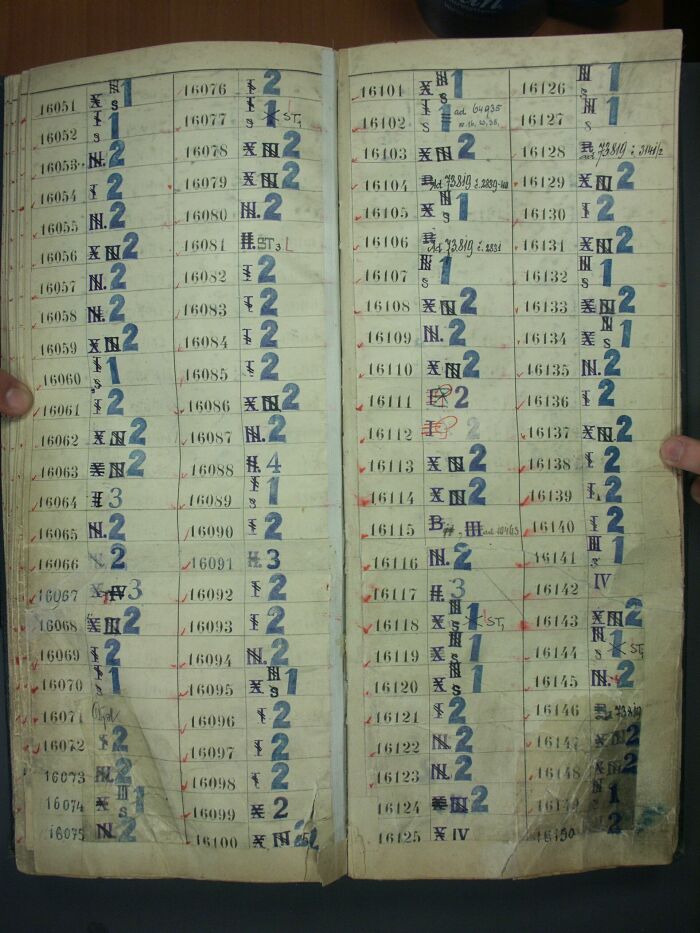 16051 X N S 1
16052 I S 1
16053 N. 2
16054 I 2
16055 N. 2
16056 X N 2
16057 N. 2
16058 N. 2
16059 X N 2
16060 I S 1
16061 I 2
16062 X N 2
16063 X N 2
16064 II 3
16065 N. 2
16066 N. 2
16067 X IV 3
16068 X N 2
16069 I 2
16070 I S 1
16071
16072 I 2
16073 N. 2
16074 X N S 1
16075 N. 2
16076 I 2
16077 I S 1 X ST,
16078 X N 2
16079 X N 2
16080 N. 2
16081 II. BT3 L
16082 I 2
16083 I 2
16084 I 2
16085 I 2
16086 X N 2
16087 N. 2
16088 II. 4
16089 I S 1
16090 I 2
16091 II. 3
16092 I 2
16093 I 2
16094 N. 2
16095 X N S 1
16096 I 2
16097 I 2
16098 I 2
16099 X 2
16100 X N 2
16101 X N S 1
16102 I S 1 ad 64935
16103 X N 2
16104 B. Ad 73819 č. 2839-40
16105 X N S 1
16106 B Ad 73819 č. 2831
16107 N S 1
16108 X N 2
16109 N. 2
16110 X N 2
16111 2
16112 I 2
16113 X N 2
16114 X N 2
16115 B III ad 10463
16116 N. 2
16117 II. 3
16118 X N S 1 X ST,
16119 X N S 1
16120 X N S 1
16121 I 2
16122 N. 2
16123 N. 2
16124 X N 2
16125 X IV
16126 N S 1
16127 N S 1
16128 B ad 73819 č. 3141/2
16129 X N 2
16130 I 2
16131 X N 2
16132 N S 1
16133 X N 2
16134 X N S 1
16135 N. 2
16136 I 2
16137 X N. 2
16138 I 2
16139 I. 2
16140 I 2
16141 N S 1
16142 IV
16143 X N 2
16144 N S 1 X ST,
16145 N. 2
16146 B 73819
16147 X N 2
16148 X N 2
16149 S 1
16150 2